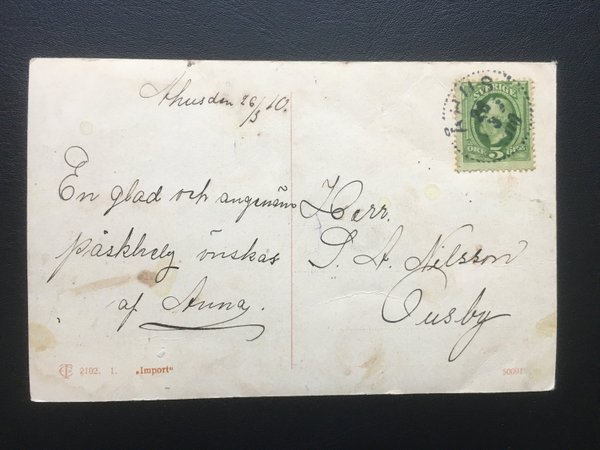 Åhus den 26/3 10.
SVERIGE
ÖRE 5 ÖRE
En glad och angenäm
påskhelg önskas
af Anna.
Herr.
S. A. Nilsson
Ousby
2192. 1. „Import"